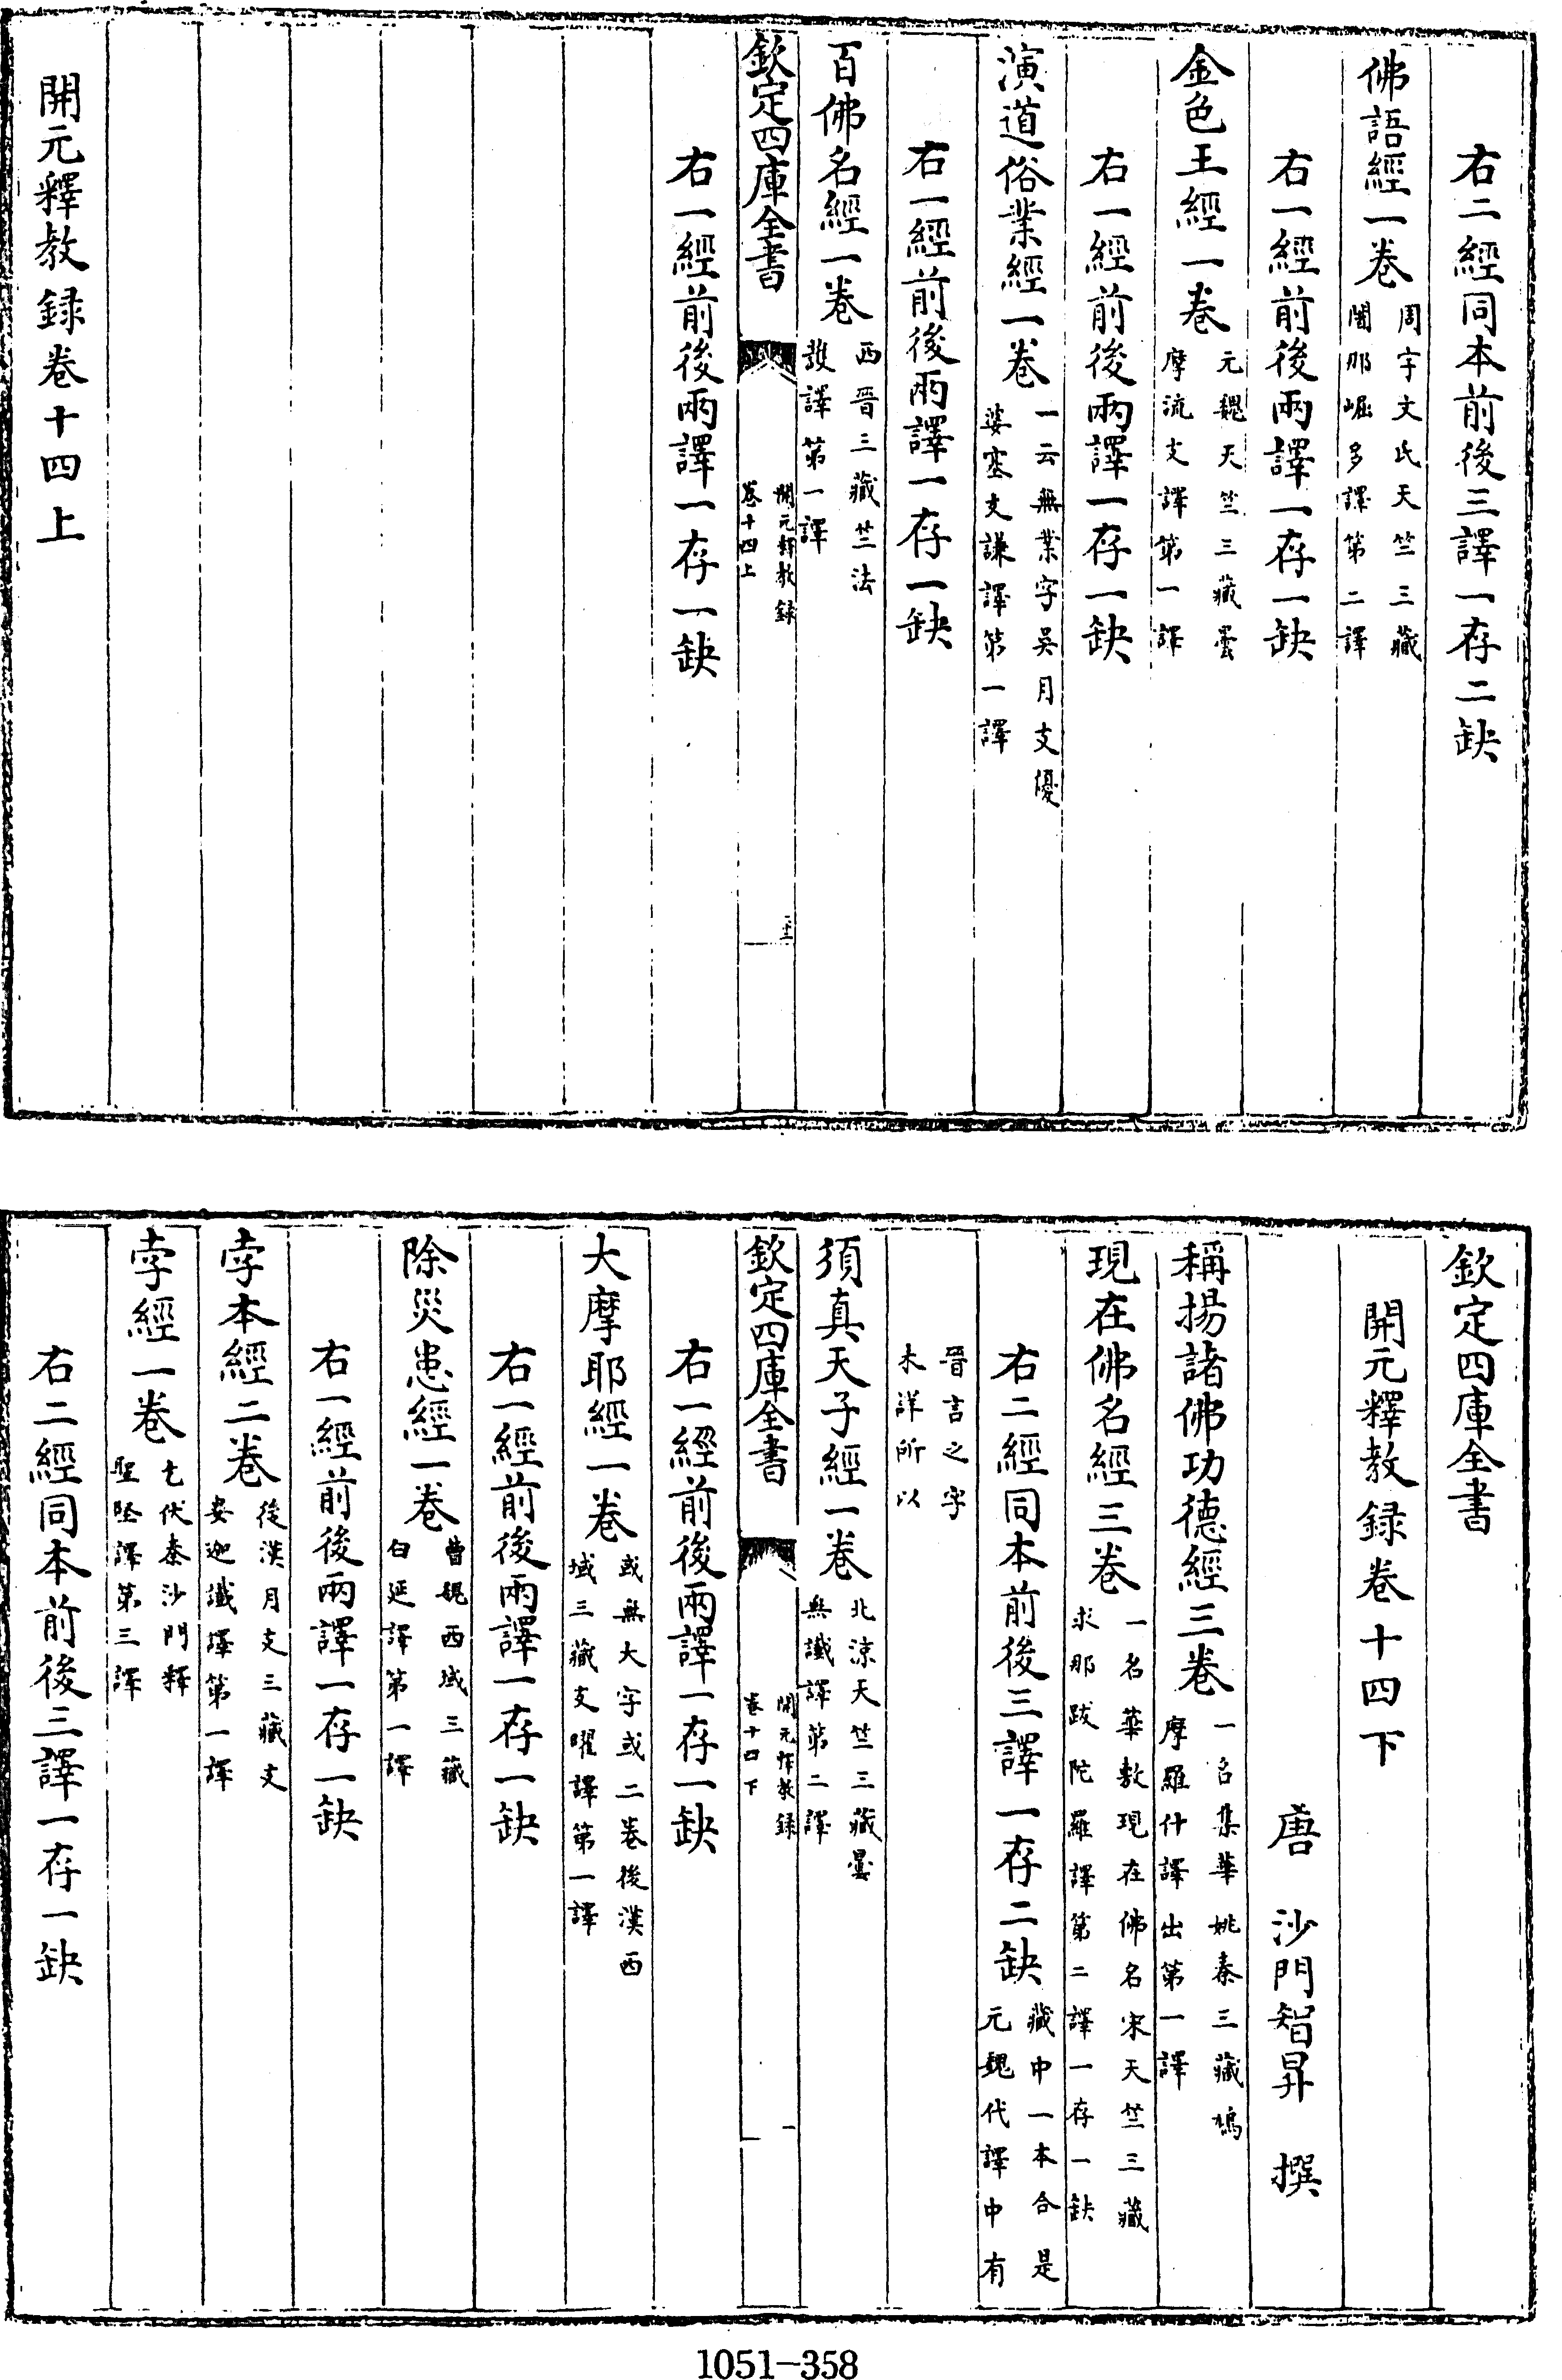 右二經同本前後三譯一存二缺
佛語經一卷周宇文氏天竺三藏闍那崛多譯第二譯
右一經前後兩譯一存一缺
金色王經一卷元魏天竺三藏曇摩流支譯第一譯
右一經前後兩譯一存一缺
演道俗業經一卷一云無業字吳月支優婆塞支謙譯第一譯
右一經前後兩譯一存一缺
百佛名經一卷西晉三藏竺法護譯第一譯
欽定四庫全書 開元釋教録卷十四上
右一經前後兩譯一存一缺
開元釋教録卷十四上
欽定四庫全書
開元釋教録卷十四下
唐 沙門智昇 撰
稱揚諸佛功德經三卷一名集華姚秦三藏鳩摩羅什譯出第一譯
現在佛名經三卷一名華敷現在佛名宋天竺三藏求那跋陀羅譯第二譯一存一缺
右二經同本前後三譯一存二缺藏中一本合是元魏代譯中有
晉言之字未詳所以
須真天子經一卷北涼天竺三藏曇無讖譯第二譯
欽定四庫全書 開元釋教録卷十四下 一
右一經前後兩譯一存一缺
大摩耶經一卷或無大字或二卷後漢西域三藏支曜譯第一譯
右一經前後兩譯一存一缺
除災患經一卷曹魏西域三藏白延譯第一譯
右一經前後兩譯一存一缺
孛本經二卷後漢月支三藏支婁迦讖譯第一譯
孛經一卷乞伏秦沙門釋聖堅譯第三譯
右二經同本前後三譯一存一缺
1051-358